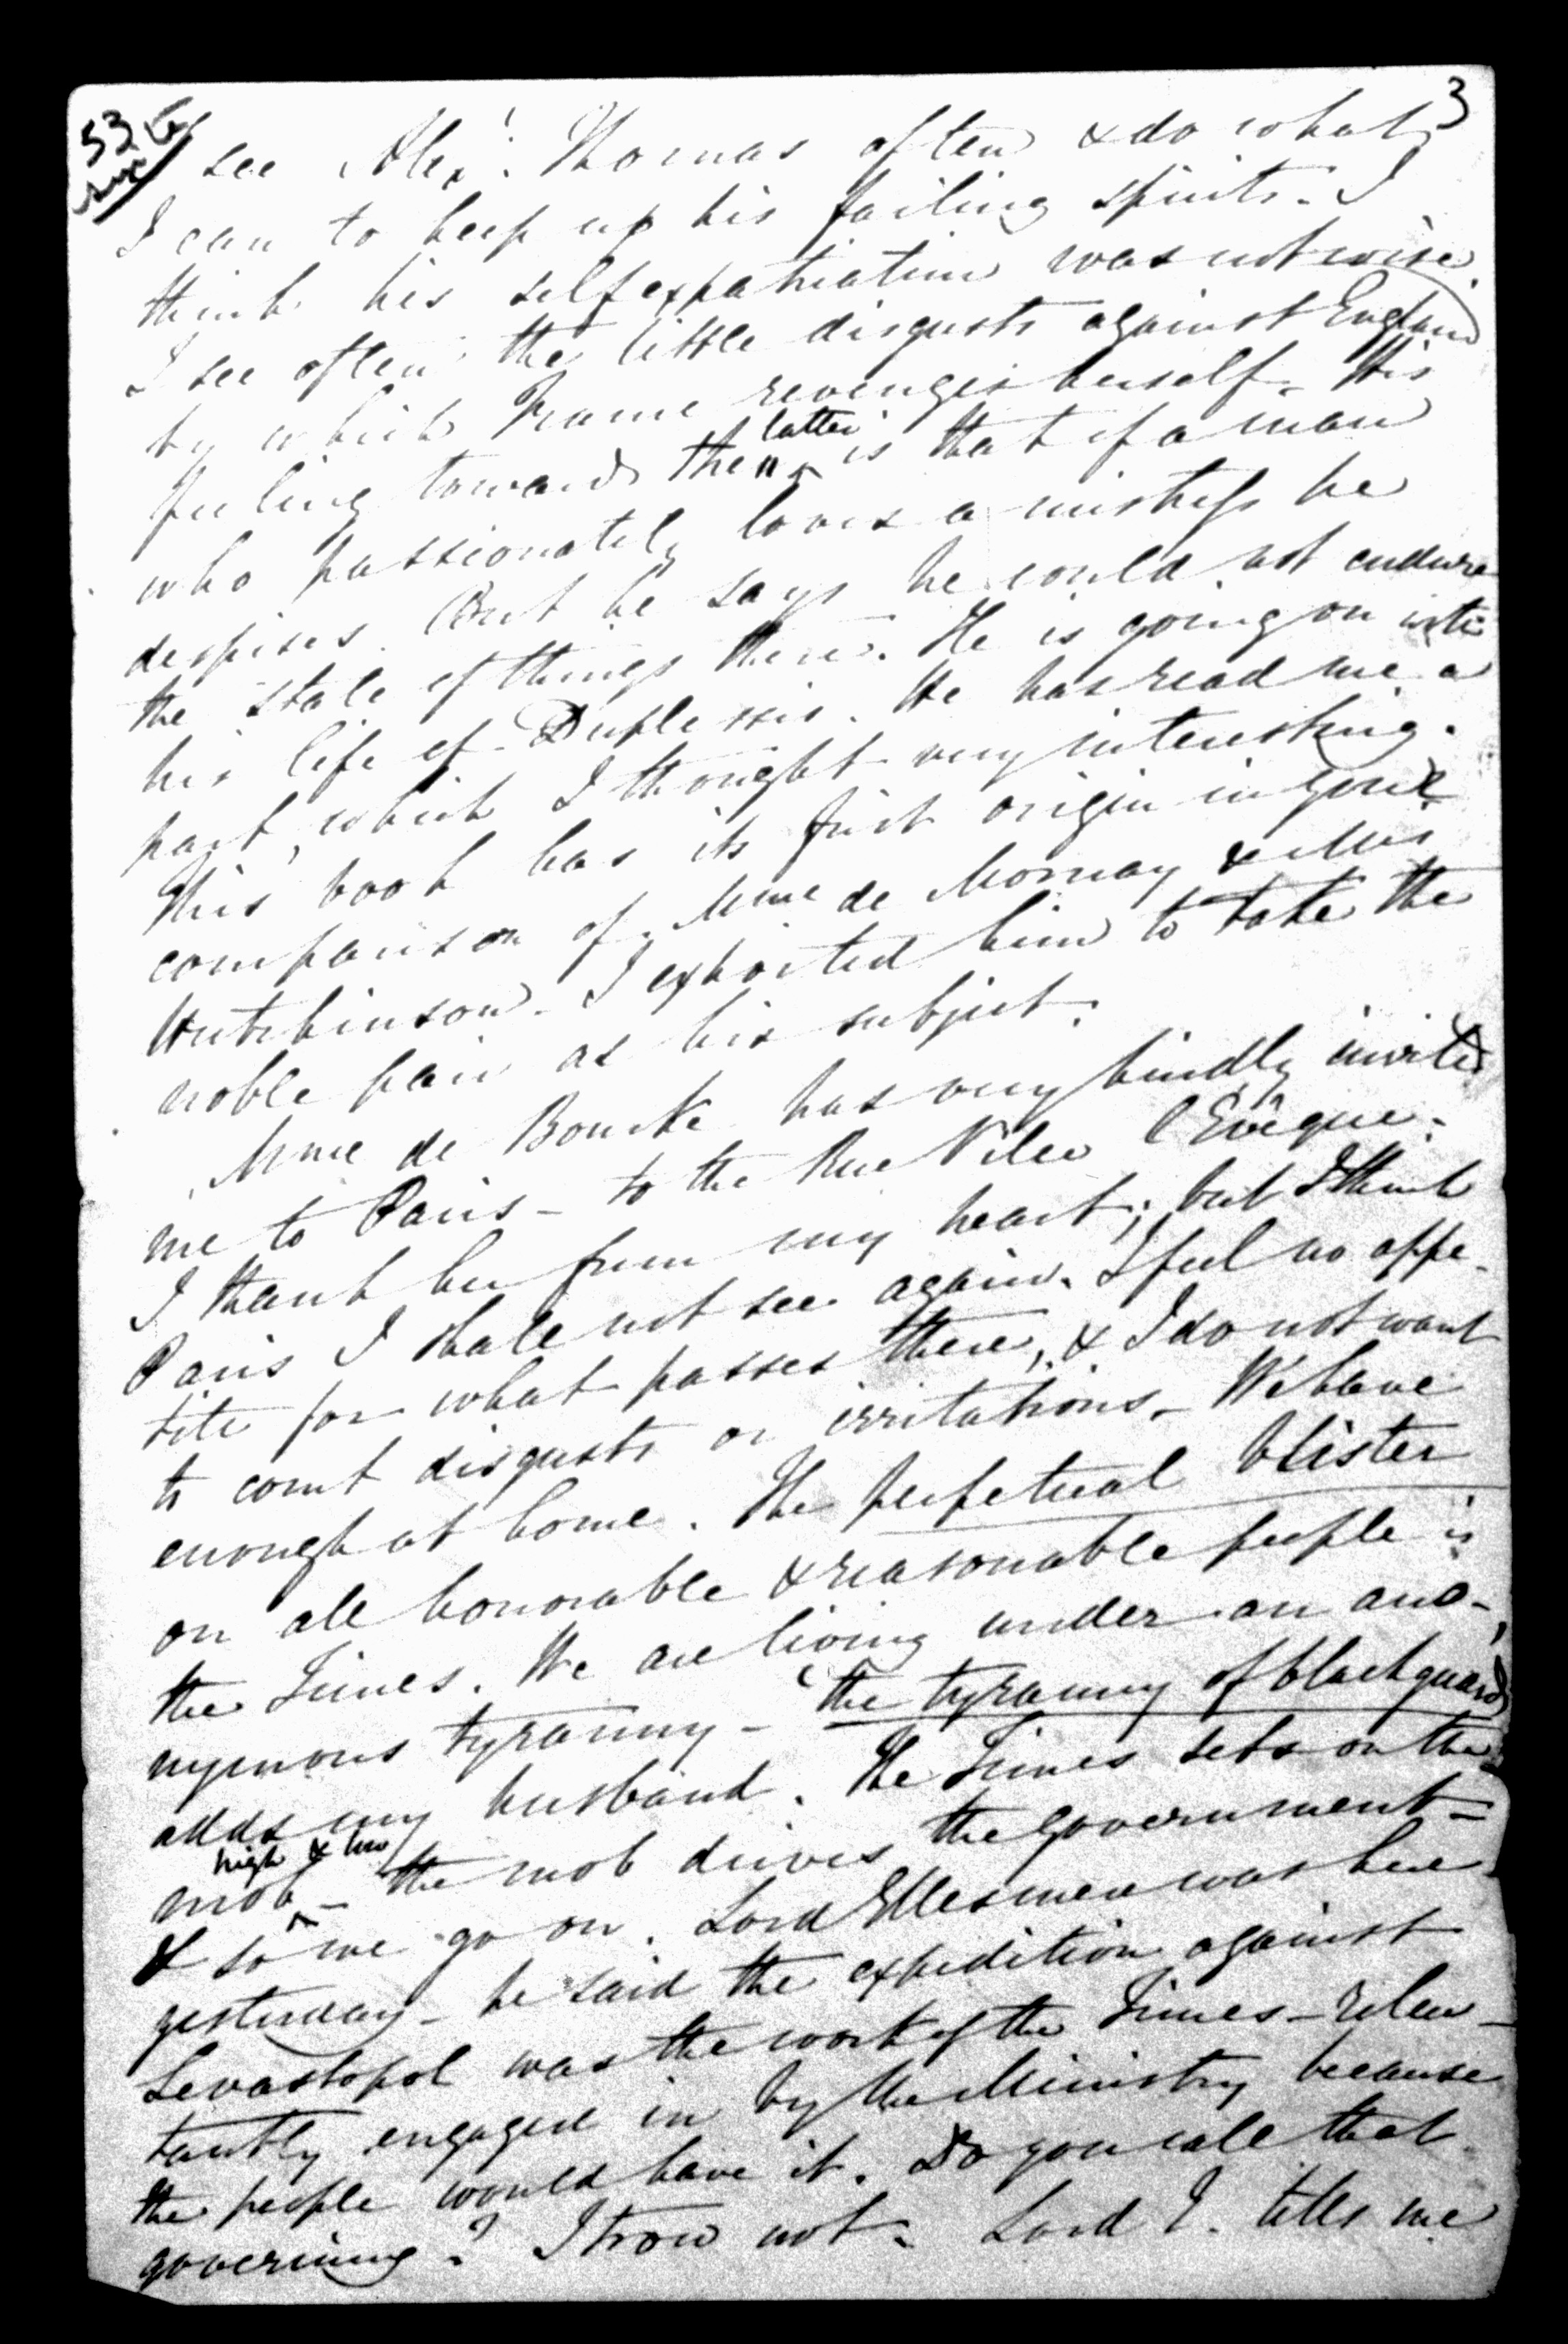 3
53
I see Alexr. Thomas often & do what
I can to keep up his failing spirits. I
think his self expatriation was not wise.
I see often the little disgusts against England
by which France revenges herself. His
feeling towards the latter is that of a man
who passionately loves a mistress he
despises. But he says he could not endure
the state of things there. He is going on with
his life of Duplessis. He has read me a
part, which I thought very interesting.
This book has its first origin in your
comparison of Mme de Mornay & Mrs
Hutchinson. I exhorted him to take the
noble pair as his subject.
Mme de Bourke has very kindly invited
me to Paris – to the Rue Ville l'Evêque.
I thank her from my heart; but I think
Paris I shall not see again. I feel no appe-
tite for what passes there, & I do not want
to court disgusts or irritations. We have
enough at home. The perpetual blister
on all honorable & reasonable people is
the Times. We are living under an ano-
nymous tyranny – "the tyranny of blackguards"
adds my husband. The Times sets on the
mob high & low – the mob drives the government –
& so we go on. Lord Ellesmere was here
yesterday – he said the expedition against
Sevastopol was the work of the Times – reluc-
tantly engaged in by the Ministry because
the people would have it. Do you call that
governing? I trow not. Lord E. tells me